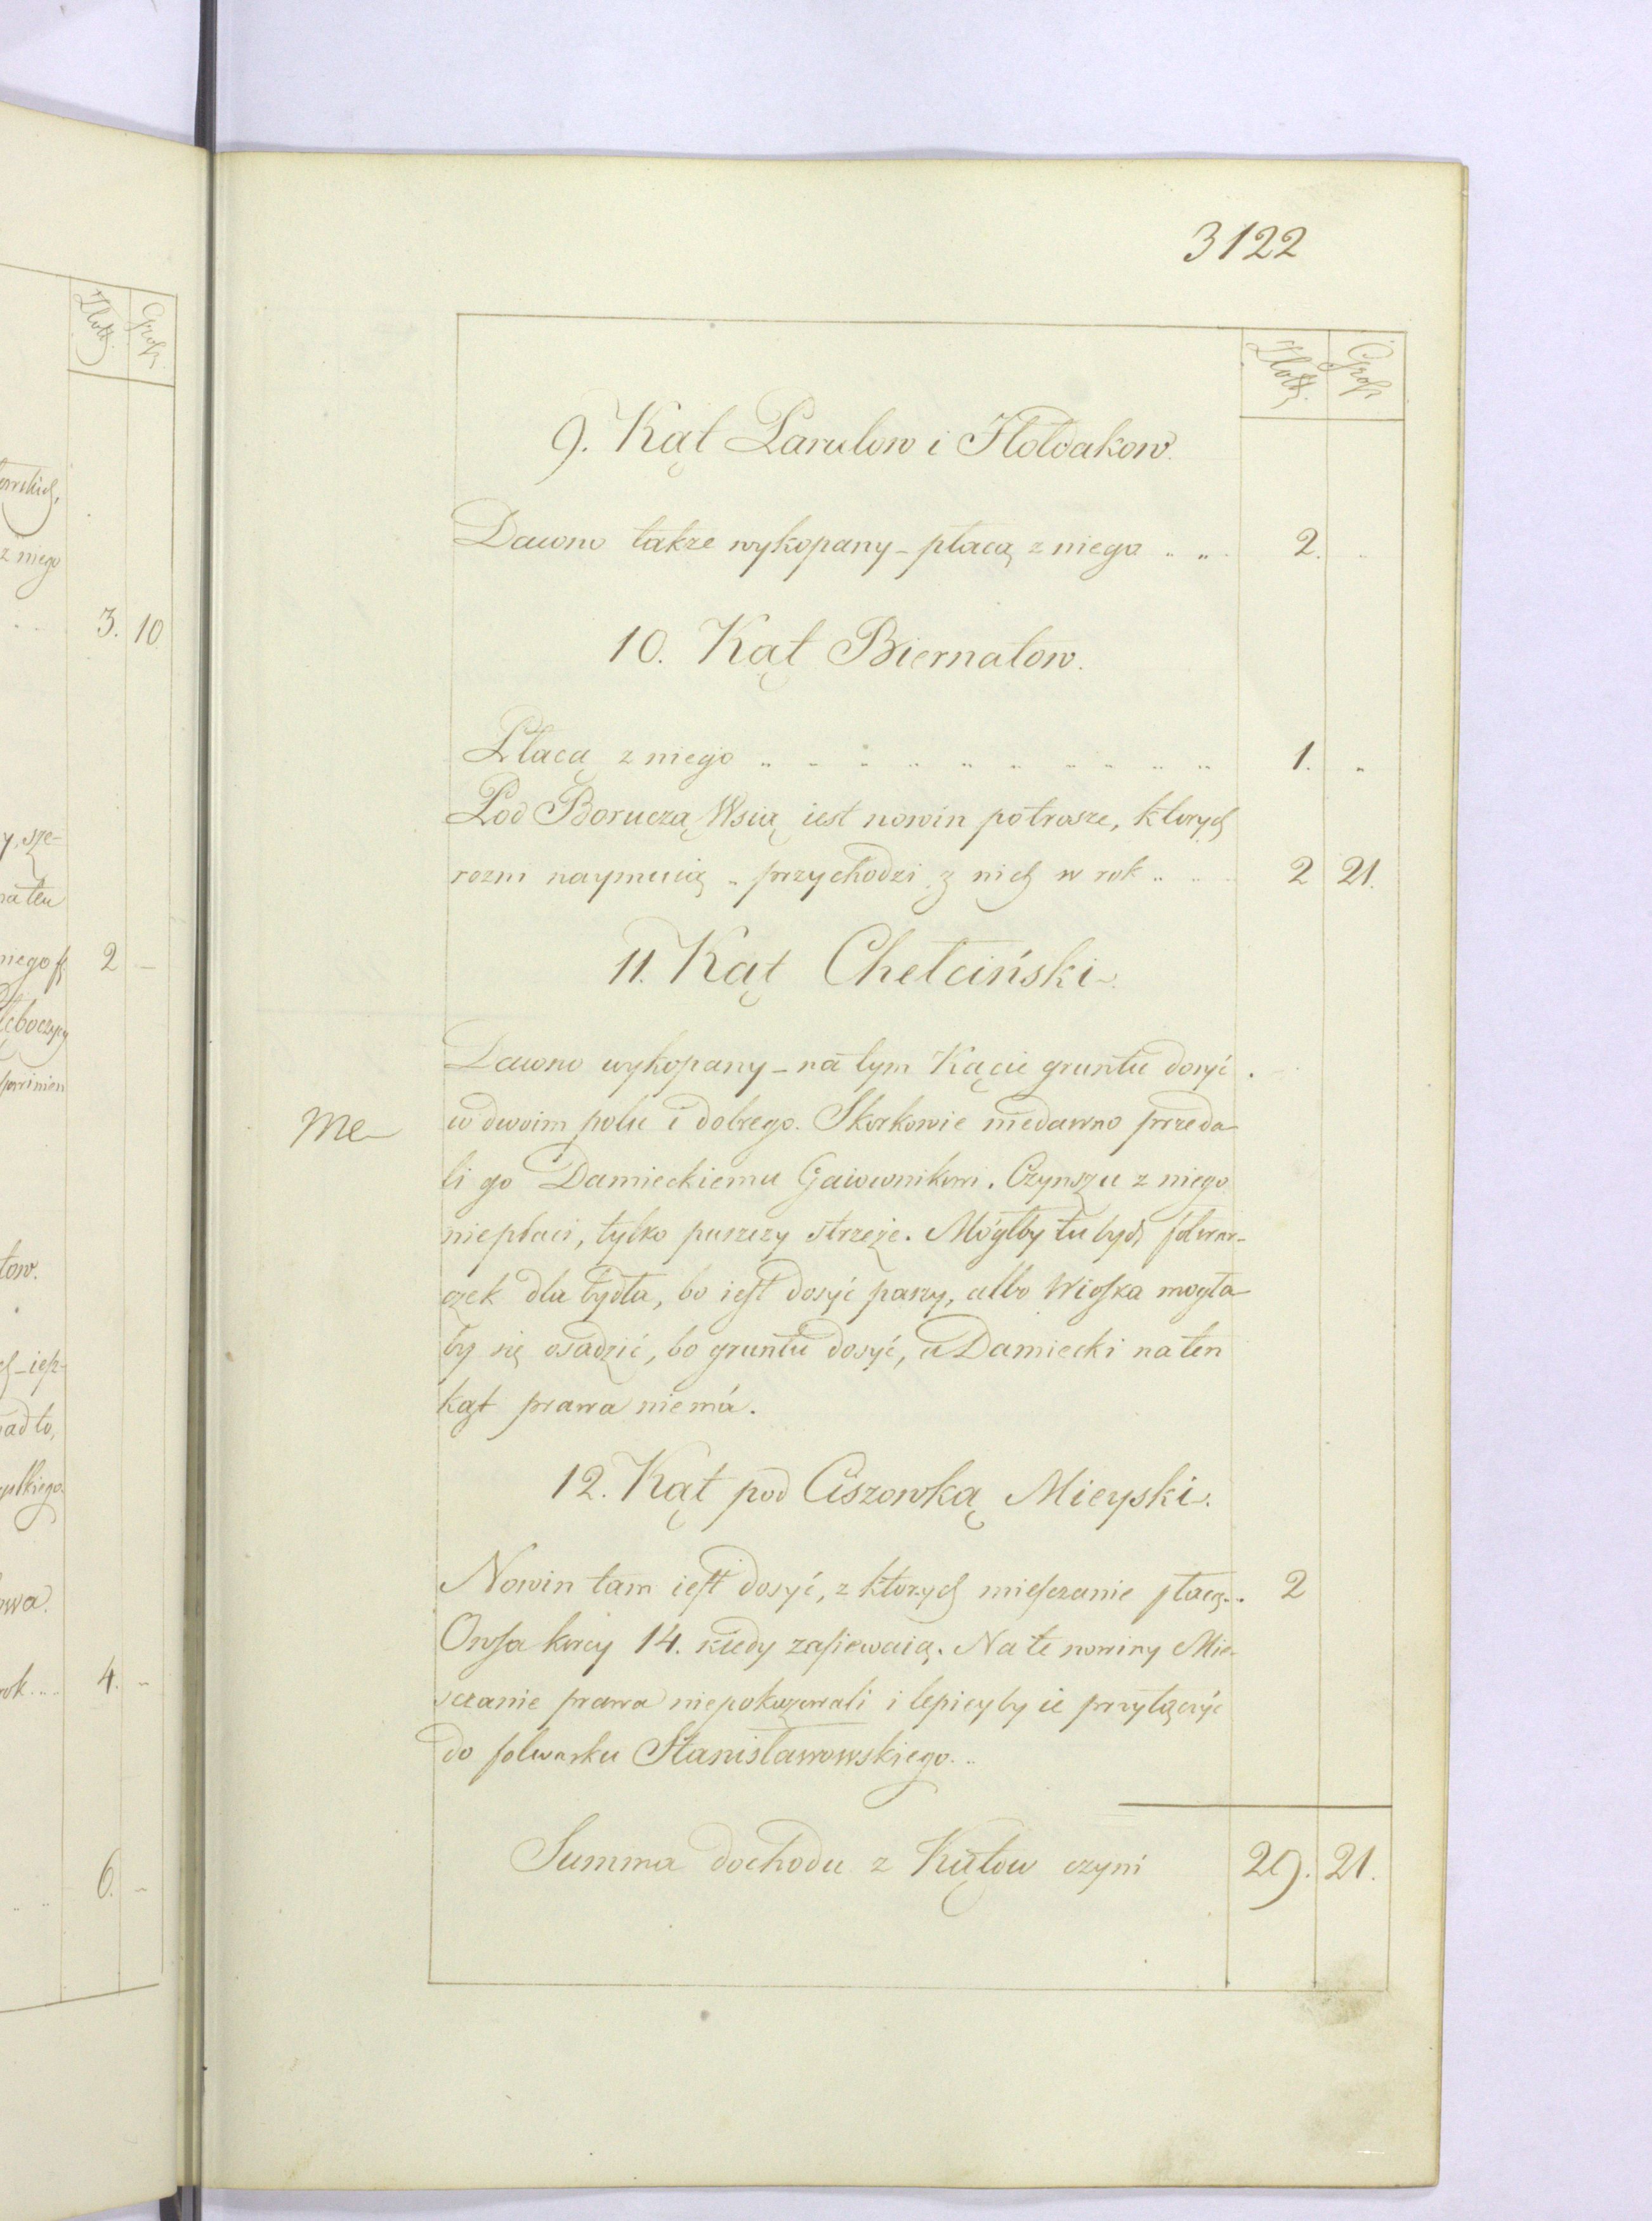 3122
Złote. Grosz.
9. Kąt Parulow i Hołdakow.
Dawno także wykopany - płacą z niego „ „ 2. „
10. Kąt Biernatow.
Płacą z niego „ „ „ „ „ „ „ „ „ „ 1. „
Pod Boruczą Wsią iest nowin potrosze, ktorych
rozni naymuią „ przychodzi z nich w rok „ „ 2 21.
11. Kąt Chełciński.
Dawno wykopany - na tym Kącie gruntu dosyć
w dwoim polu i dobrego. Skorkowie niedawno przeda-
li go Damieckiemu Gaiownikowi. Czynszu z niego
niepłaci, tylko puszczy strzeże. Mógłby tu bydź folwar-
czek dla bydła, bo iest dosyć paszy, albo Wioska mogła
by się osadzić, bo gruntu dosyć, a Damiecki na ten
kąt prawa niemá.
12. Kąt pod Ciszowką Mieyski.
Nowin tam iest dosyć, z ktorych miesczanie płacą.. 2
Owsa korcy 14. kiedy zasiewaią. Na te nowiny Mie-
sczanie prawa niepokazowali i lepieyby ie przyłączyć
do folwarku Stanisławowskiego..
Summa dochodu z Kątow czyni 29. 21.